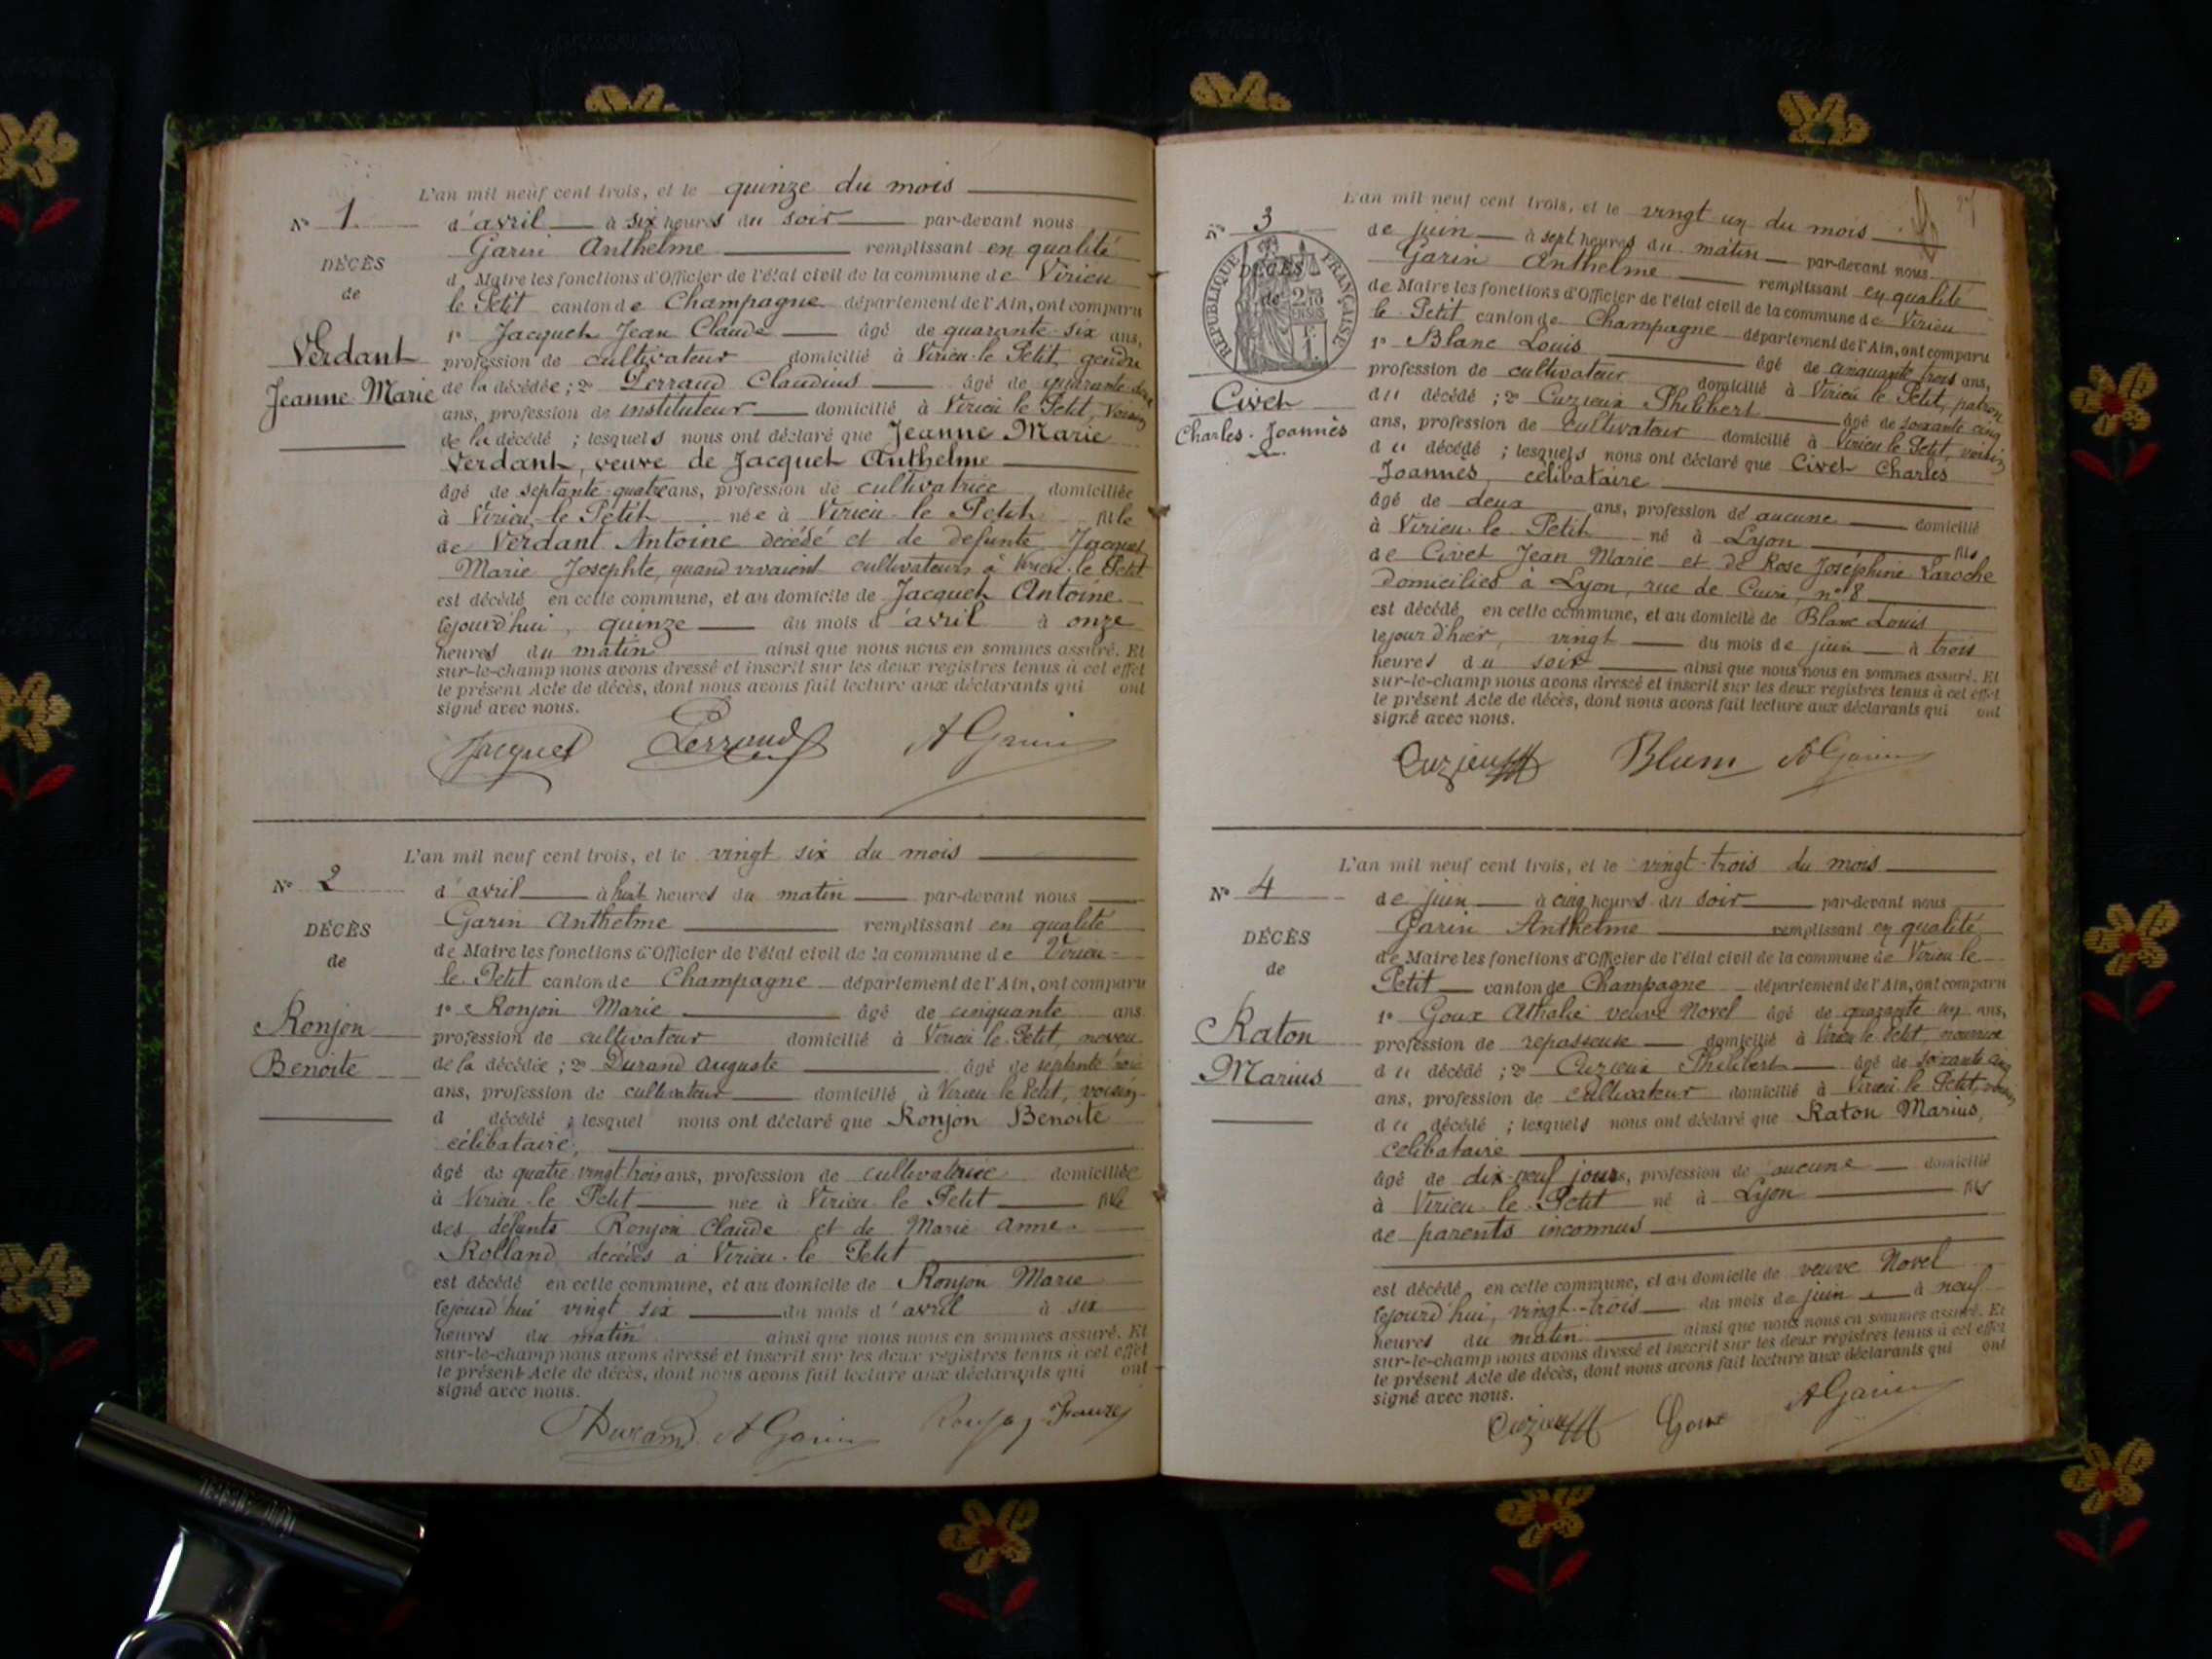 L'an mil neuf cent trois, et le quinze du mois
N° 1.
d'avril à six heures du soir par-devant nous
Garin Anthelme remplissant en qualité
DÉCÈS
d Maire les fonctions d'Officier de l'état civil de la commune de Virieu
de
le Petit canton de Champagne département de l'Ain, ont comparu
1° Jacquet Jean Claude âgé de quarante-six ans,
Verdant
profession de cultivateur domicilié à Virieu-le Petit, gendre
Jeanne Marie
de la décédée ; 2° Perraud Claudius âgé de quarante-deux
ans, profession de instituteur domicilié à Virieu le Petit, voisin
de la décédé ; lesquels nous ont déclaré que Jeanne Marie
Verdant, veuve de Jacquet Anthelme
âgé de septante-quatre ans, profession de cultivatrice domiciliée
à Virieu-le Petit née à Virieu-le Petit fille
de Verdant Antoine décédé et de defunte Jacquet
Marie Josephte, quand vivaient cultivateurs à Virieu-le Petit
est décédé en cette commune, et au domicile de Jacquet Antoine
lejourd'hui, quinze du mois d'avril à onze
heures du matin ainsi que nous nous en sommes assuré. Et
sur-le-champ nous avons dressé et inscrit sur les deux registres tenus à cet effet
le présent Acte de décès, dont nous avons fait lecture aux déclarants qui ont
signé avec nous.
Jacquet Perraud A Garin
L'an mil neuf cent trois, et le vingt six du mois
N° 2
d'avril à huit heures du matin par-devant nous
Garin Anthelme remplissant en qualité
DÉCÈS
de Maire les fonctions d'Officier de l'état civil de la commune de Virieu-
de
le Petit canton de Champagne département de l'Ain, ont comparu
1° Ronjon Marie âgé de cinquante ans
Ronjon
profession de cultivateur domicilié à Virieu le Petit, neveu
Benoite
de la décédée ; 2° Durand Auguste âgé de septante trois
ans, profession de cultivateur domicilié à Virieu le Petit, voisin
d décédé ; lesquel nous ont déclaré que Ronjon Benoite
célibataire,
âgé de quatre-vingt-trois ans, profession de cultivatrice domiciliée
à Virieu-le Petit née à Virieu-le Petit fille
des défunts Ronjon Claude et de Marie Anne
Rolland décédés à Virieu-le Petit
est décédé en cette commune, et au domicile de Ronjon Marie
lejourd'hui vingt six du mois d'avril à six
heures du matin ainsi que nous nous en sommes assuré. Et
sur-le-champ nous avons dressé et inscrit sur les deux registres tenus à cet effet
le présent Acte de décès, dont nous avons fait lecture aux déclarants qui ont
signé avec nous.
Durand A Garin
L'an mil neuf cent trois, et le vingt un du mois
N° 3
de juin à sept heures du matin par-devant nous
Garin Anthelme remplissant en qualité
RÉPUBLIQUE FRANÇAISE
DÉCÈS
de
de Maire les fonctions d'Officier de l'état civil de la commune de Virieu
le Petit canton de Champagne département de l'Ain, ont comparu
1° Blanc Louis âgé de cinquante trois ans,
profession de cultivateur domicilié à Virieu le Petit, patron
Civet
du décédé ; 2° Cuzieux Philibert âgé de soixante cinq
Charles-Joannès
ans, profession de cultivateur domicilié à Virieu le Petit, voisin
du décédé ; lesquels nous ont déclaré que Civet Charles
Joannes, célibataire
âgé de deux ans, profession de aucune domicilié
à Virieu-le Petit né à Lyon fils
de Civet Jean Marie et de Rose Joséphine Laroche
domiciliés à Lyon, rue de Cuire, n° 8
est décédé en cette commune, et au domicile de Blanc Louis
lejour d'hier, vingt du mois de juin à trois
heures du soir ainsi que nous nous en sommes assuré. Et
sur-le-champ nous avons dressé et inscrit sur les deux registres tenus à cet effet
le présent Acte de décès, dont nous avons fait lecture aux déclarants qui ont
signé avec nous.
Cuzieux A Garin
L'an mil neuf cent trois, et le vingt-trois du mois
N° 4
de juin à cinq heures du soir par-devant nous
Garin Anthelme remplissant en qualité
DÉCÈS
de Maire les fonctions d'Officier de l'état civil de la commune de Virieu le
de
Petit canton de Champagne département de l'Ain, ont comparu
1° Goux Athalie veuve Novel âgé de quarante un ans,
Raton
profession de repasseuse domicilié à Virieu le Petit, nourrice
Marius
du décédé ; 2° Cuzieux Philibert âgé de soixante cinq
ans, profession de cultivateur domicilié à Virieu le Petit, voisin
du décédé ; lesquels nous ont déclaré que Raton Marius,
célibataire
âgé de dix-neuf jours, profession de aucune domicilié
à Virieu-le-Petit né à Lyon fils
de parents inconnus
est décédé en cette commune, et au domicile de veuve Novel
lejourd'hui, vingt-trois du mois de juin à neuf
heures du matin ainsi que nous nous en sommes assuré. Et
sur-le-champ nous avons dressé et inscrit sur les deux registres tenus à cet effet
le présent Acte de décès, dont nous avons fait lecture aux déclarants qui ont
signé avec nous.
Cuzieux Goux A Garin